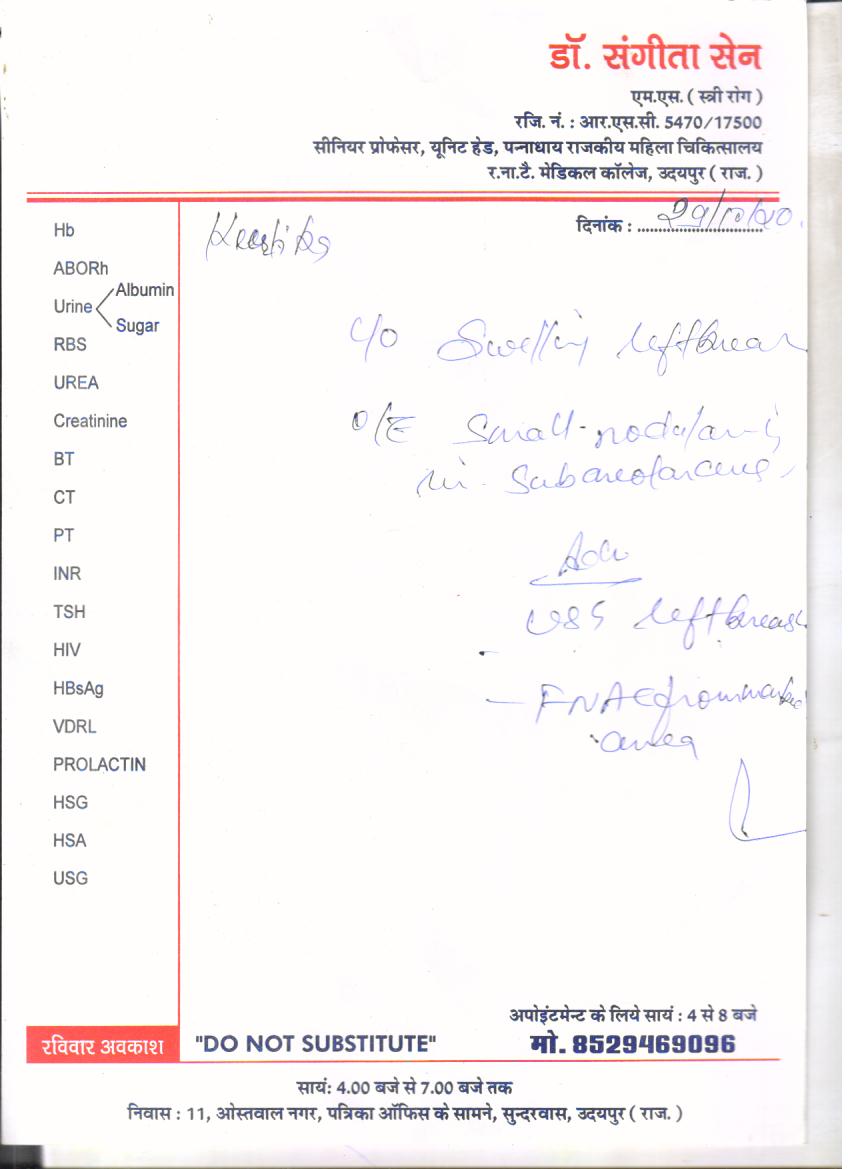 डॉ. संगीता सेन
एम.एस. ( स्त्री रोग )
रजि. नं. : आर.एस.सी. 5470/17500
सीनियर प्रोफेसर, यूनिट हेड, पन्नाधाय राजकीय महिला चिकित्सालय
र.ना.टै. मेडिकल कॉलेज, उदयपुर ( राज. )
दिनांक : 29/10/20.
Hb
ABORh
Urine Albumin
Sugar
RBS
UREA
Creatinine
BT
CT
PT
INR
TSH
HIV
HBsAg
VDRL
PROLACTIN
HSG
HSA
USG
C/O Swelling left breast
O/E Small nodularity
in Subareolar area
Adv
USG left breast
- FNAC from marked
area
अपोइंटमेन्ट के लिये सायं : 4 से 8 बजे
रविवार अवकाश
"DO NOT SUBSTITUTE"
मो. 8529469096
सायं: 4.00 बजे से 7.00 बजे तक
निवास : 11, ओस्तवाल नगर, पत्रिका ऑफिस के सामने, सुन्दरवास, उदयपुर ( राज. )